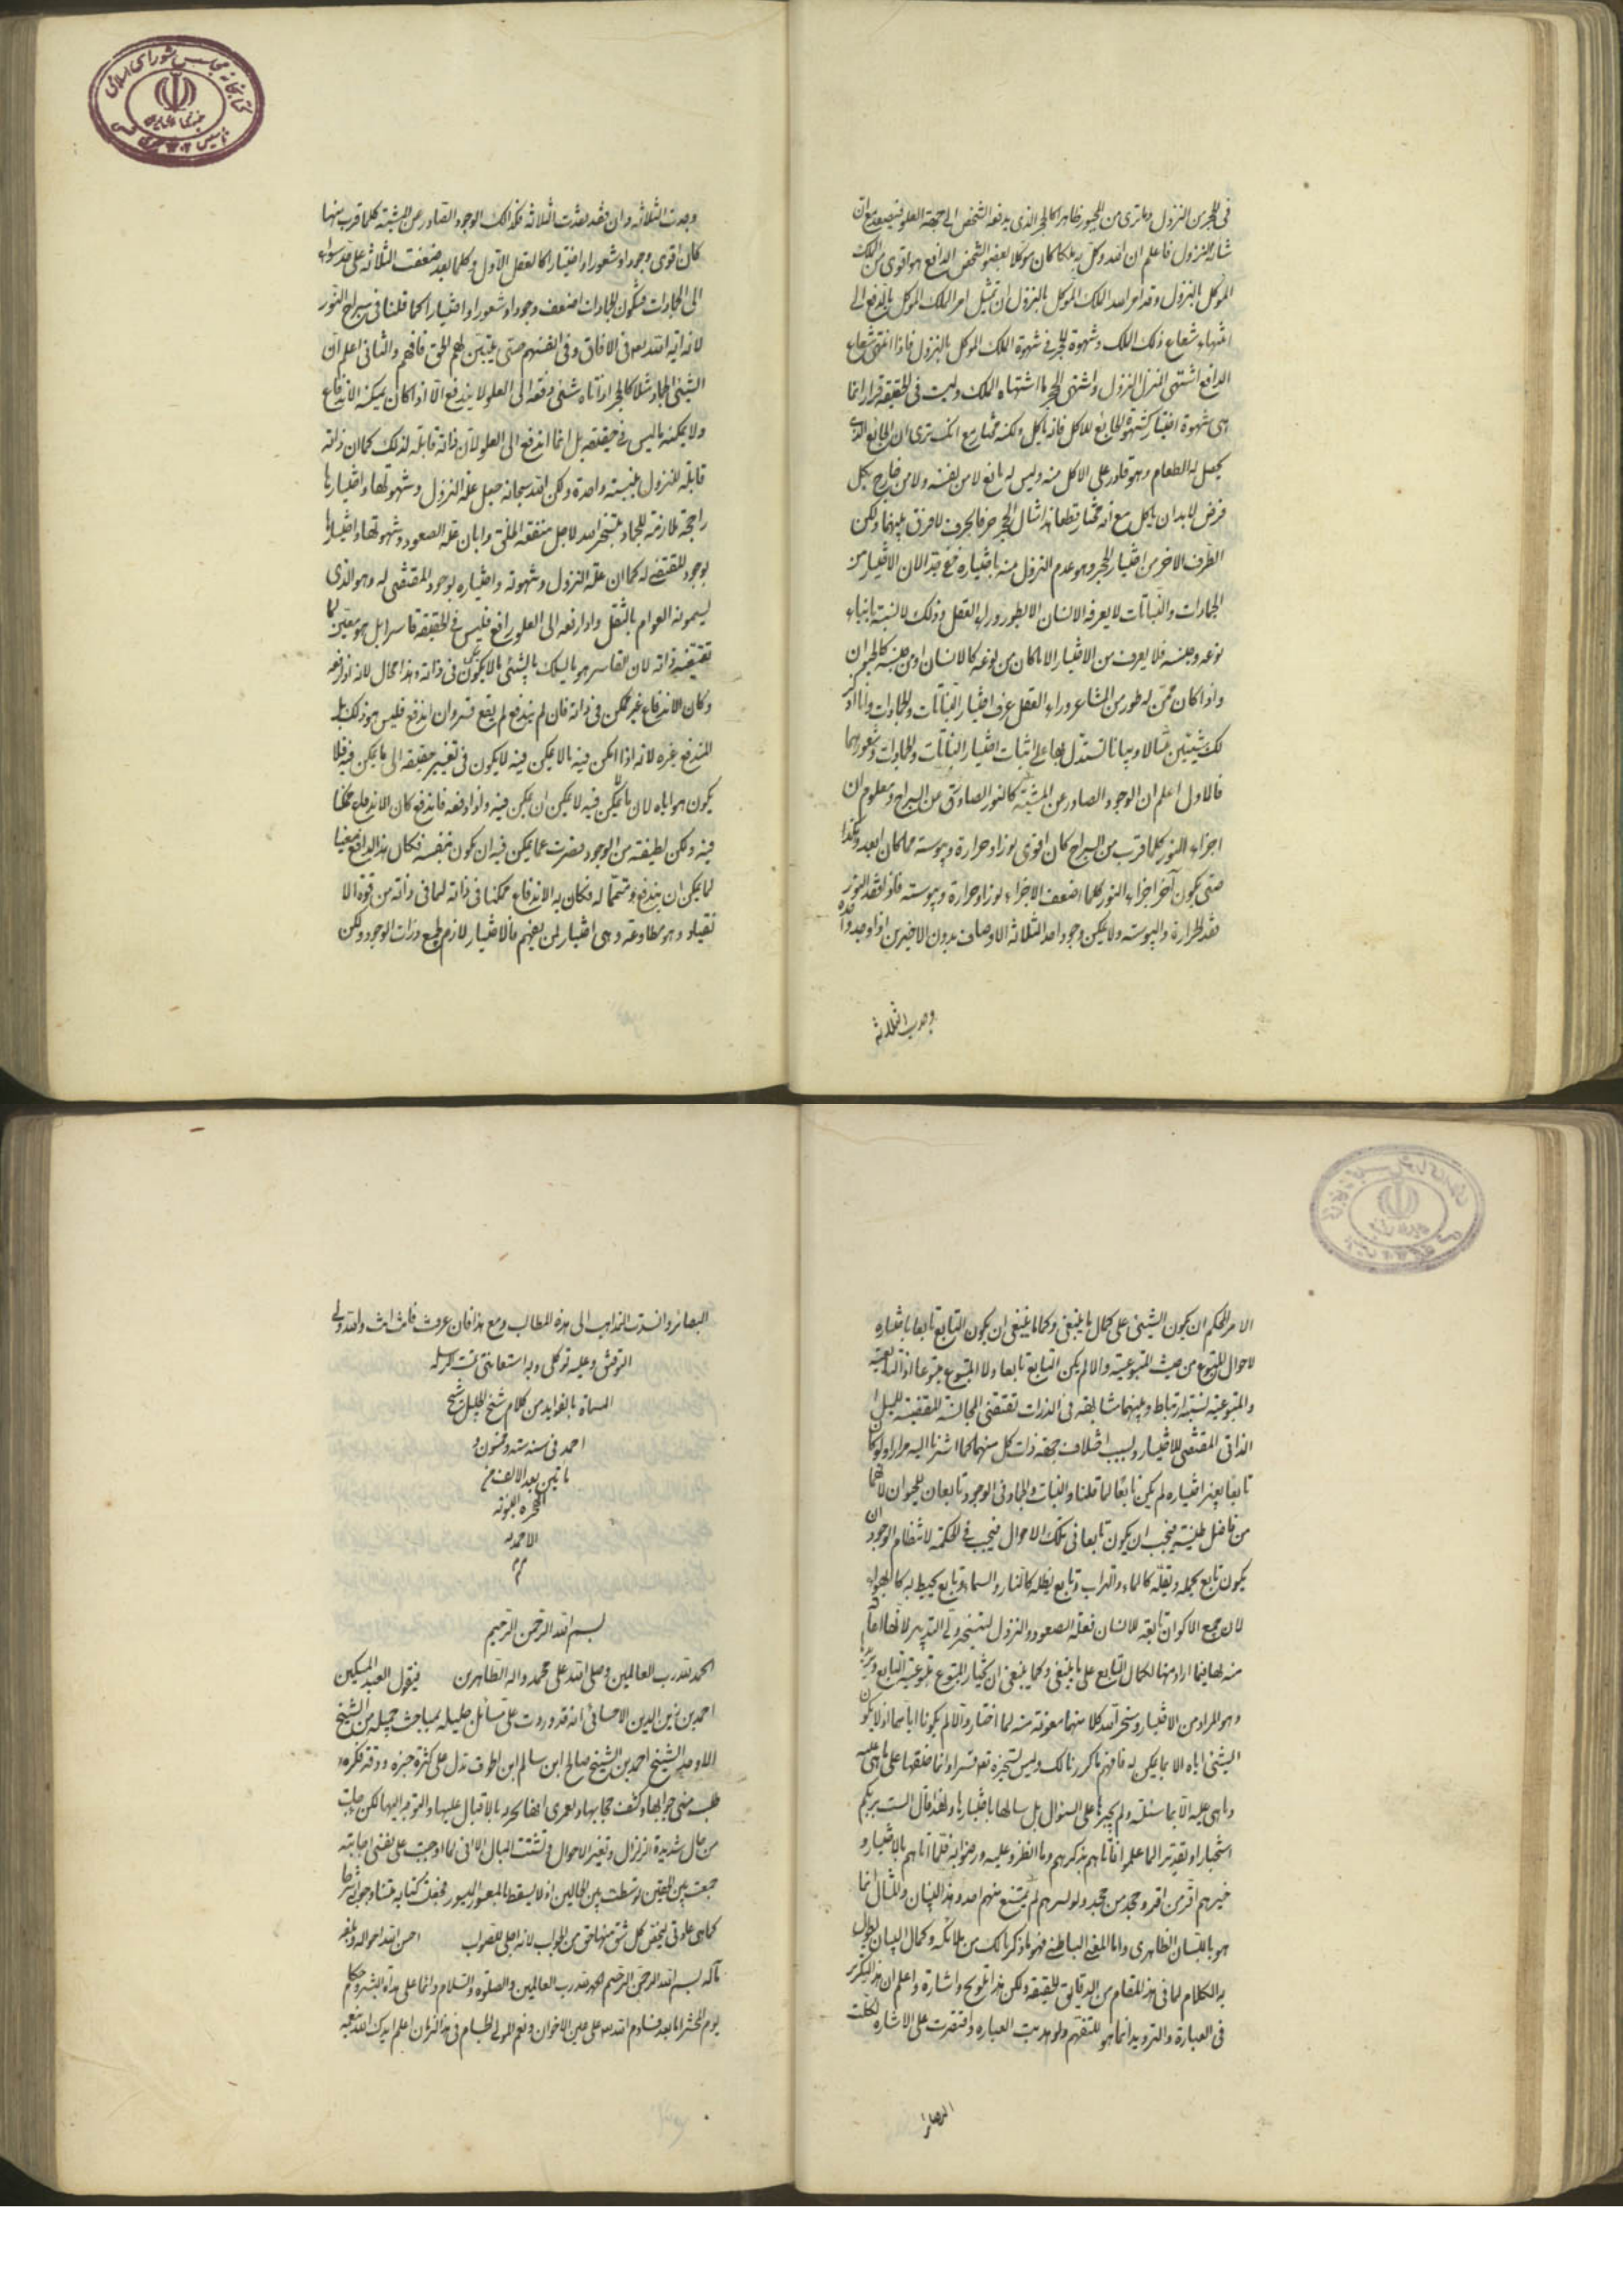 في الحجر من النزول وما ترى من المجبور ظاهرا كالحجر الذي يدفعه الشخص الى جهة العلو فيصعد مع ان
شانه النزول فاعلم ان الله وكل به ملكا كان موكلا بعضو الشخص الدافع هو اقوى من الملك
الموكل بالنزول وقد امر الله الملك الموكل بالنزول ان تمثيل امر الملك الموكل بالدفع الى
انتهاء شعاع ذلك الملك وشهوة الحجر في شهوة الملك الموكل بالنزول فاذا انتهى شعاع
الدافع اشتهى المنزل النزول واشتهى الحجر ما اشتهاه الملك وليست في الحقيقة قسرا وانما
هي شهوة اختيار كشهوة الجايع للاكل فانه ياكل ولكنه مختار مع انك ترى ان الجائع الذي
يحصل له الطعام وهو قادر على الاكل منه وليس له مانع لا من نفسه ولا من خارج بكل
فرض لابد ان ياكل مع انه مختار قطعا هذا مثال الحجر حرفا بحرف لا فرق بينهما ولكن
الطرف الاخر من اختيار الحجر وهو عدم النزول منه باختياره
الجمادات والنباتات لا يعرفه الانسان الا بطور وراء العقل وذلك لانسبة بابناء
نوعه وجنسه فلا يعرف من الاختيار الا ما كان من نوعه كالانسان او من جنسه كالحيوان
واذا كان ممن له طور من المشاعر وراء العقل عرف اختيار النباتات والجمادات وانا اذكر
لك شيئين مثالا وبيانا تستدل بهما على اثبات اختيار النباتات والجمادات وشعورهما
فالاول اعلم ان الوجود الصادر عن المشية كالنور الصادر من السراج ومعلوم ان
اجزاء النور كلما قرب من السراج كان اقوى نورا وحرارة ويبوسة مما كان بعيدا وهكذا
حتى يكون آخر اجزاء النور كلها اضعف الاجزاء نورا وحرارة ويبوسة فاذا فقد النور
فقد الحرارة واليبوسة ولا يمكن وجود احد الثلاثة الاوصاف بدون الاخيرين اذا وجد واحد
وجدت الثلاثة
وجدت الثلاثة وان فقد فقدت الثلاثة فكذلك الوجود الصادر عن المشية كلما قرب منها
كان اقوى وجودا وشعورا واختيارا كالعقل الاول وكلما بعد ضعفت الثلاثة على حد سواء
الى الجمادات فتكون الجمادات اضعف وجودا وشعورا واختيارا كما قلنا في سراج النور
لانه اية الله تعالى في الافاق وفي انفسهم حتى يتبين لهم الحق فافهم والثاني اعلم ان
الشيئ الجماد مثلا كالحجر اذا اتاه شئي دفعه الى العلو لا يندفع الا اذا كان يمكنه الاندفاع
ولا يمكنه ما ليس في حقيقته بل انما اندفع الى العلو لان ذاته قابلة لذلك كما ان ذاته
قابلة للنزول بنسبة واحدة ولكن الله سبحانه جعل علة النزول وشهوتها واختيارها
راجحة ملازمة للجماد بتسخير الله لاجل منفعة الخلق وابان علة الصعود وشهوتها واختيارها
بوجود المقتضي له كما ان علة النزول وشهوته واختياره بوجود المقتضي له وهو الذي
يسمونه العوام بالثقل واذا دفعه الى العلو دافع فليس في الحقيقة قاسرا بل هو معين لما
تقتضيه ذاته لان القاسر هو ما يسلك بالشئي ما لا يمكن في ذاته وهذا محال لانه اذا دفعه
وكان الاندفاع غير ممكن في ذاته فان لم يندفع لم يقع قسر وان اندفع فليس هو ذلك بل
المندفع غيره لانه اذا امكن فيه ما لا يمكن فيه لا يكون في تغيير حقيقته الى ما يمكن فيه فلا
يكون هو اياه لان ما لا يمكن فيه لا يمكن ان يمكن فيه واذا دفعه فاندفع كان الاندفاع ممكنا
فيه ولكن لطيفته من الوجود قصرت عما يمكن فيه ان يكون بنفسه فكان هذا الدافع معينا
لما يمكن ان يندفع ومتمما له فكان به الاندفاع ممكنا في ذاته لما في ذاته من قوة الا
نقياد وهو مطاوعته وهي اختيار لمن يفهم فالاختيار لازم لجميع ذرات الوجود ولكن
الامر المحكم ان يكون الشيئ على كمال ما ينبغي وكما ينبغي ان يكون التابع تابعا باختياره
لاحوال المتبوع من حيث المتبوعية والا لم يكن التابع تابعا ولا المتبوع متبوعا اذ التابعية
والمتبوعية نسبة ارتباط وبينهما مشابهة في الذرات تقتضي المجانسة المقتضية للميل
الذاتي المقتضي للاختيار ولسبب اختلاف جهة ذات كل منهما كما اشرنا اليه مرارا ولو كان
تابعا بغير اختياره لم يكن تابعا لما قلنا والنبات والجماد في الوجود تابعان للحيوان لانهما
من فاضل طينته فيجب ان يكون تابعا في تلك الاحوال فيجب في الحكمة لانتظام الوجود ان
يكون تابع يحمله ويقله كالماء والتراب وتابع يظله كالنار والسماء وتابع يحيط به كالهواء
لان جميع الاكوان تابعة للانسان فعلة الصعود والنزول لتسخير ولي التدبير لانها العام
منه لها فيما اراد منها لكمال التابع على ما ينبغي وكما ينبغي ان يختار المتبوع متبوعية التابع ويريدها
وهو المراد من الاختيار وسخر الله كلا منهما معونة منه لما اختار والا لم يكونا اياهما اذ لا يكون
الشيئ اياه الا بما يمكن له فافهم ما كررنا لك وليس تسخيره تعالى قسرا وانما خلقها على ما هي عليه
وما هي عليه الا بما سئلته ولم يجبرها على السؤال بل سالها باختيارها ولهذا قال الست بربكم
استخبارا وتقديرا لما علموا فاتاهم بذكرهم وما انظروا عليه ورضوا به فلما اتاهم بالاختيار و
خيرهم اقر من اقر وجحد من جحد ولو لم يمتنع منهم احد وهذا البيان والمثال انما
هو باللسان الظاهري واما المعنى الباطني فهو ما ذكرنا لك من ملائكة وكمال البيان يطول
به الكلام لما في هذا المقام من الدقايق الحقيقة ولكن هذا تلويح واشارة واعلم ان هذا التكرير
في العبارة والترديد انما هو للتفهم ولو هذبت العبارة واقتصرت على الاشارة لكلت
البصائر
البصائر وانسدت المذاهب الى هذه المطالب ومع هذا فان عرفت فانت انت والله ولي
التوفيق وعليه توكلي وبه استعانتي تمت الرسالة
المسماة بالفوايد من كلام شيخ الجليل شيخ
احمد في سنة ستة وخمسون و
ماتين بعد الالف من
الهجرة النبوية
الاحمدية
م م
بسم الله الرحمن الرحيم
الحمد لله رب العالمين وصلى الله على محمد واله الطاهرين فيقول العبد المسكين
احمد بن زين الدين الاحسائي انه قد وردت علي مسائل جليلة بمباحث جميلة من الشيخ
الاوحد الشيخ احمد بن الشيخ صالح ابن سالم ابن طوق تدل على كثرة خبره ودقة فكره
طلب مني جوابها وكشف حجابها ولعمري انها لحرية بالاقبال عليها والتوجه اليها لكن جاءت
من حال شديدة الزلزال وتغير الاحوال وتشتت البال الا اني لما اوجبت على نفسي اجابته
جمعت بين الحقين توسطت بين الحالين اذ لا يسقط الميسور بالمعسور فجعلت كتابه متنا وجوابي شرحا
كما هي عادتي ليختص كل شق منها بحق من الجواب لانه اجلى للصواب احسن الله احواله وبلغه
مآله بسم الله الرحمن الرحيم الحمد لله رب العالمين والصلوة والسلام دائما على هداة البشر وحكام
يوم المحشر اما بعد فسلام الله تعالى على عين الاخوان ونعم المولى لطيام في هذا الزمان اعلم ايدك الله تعالى